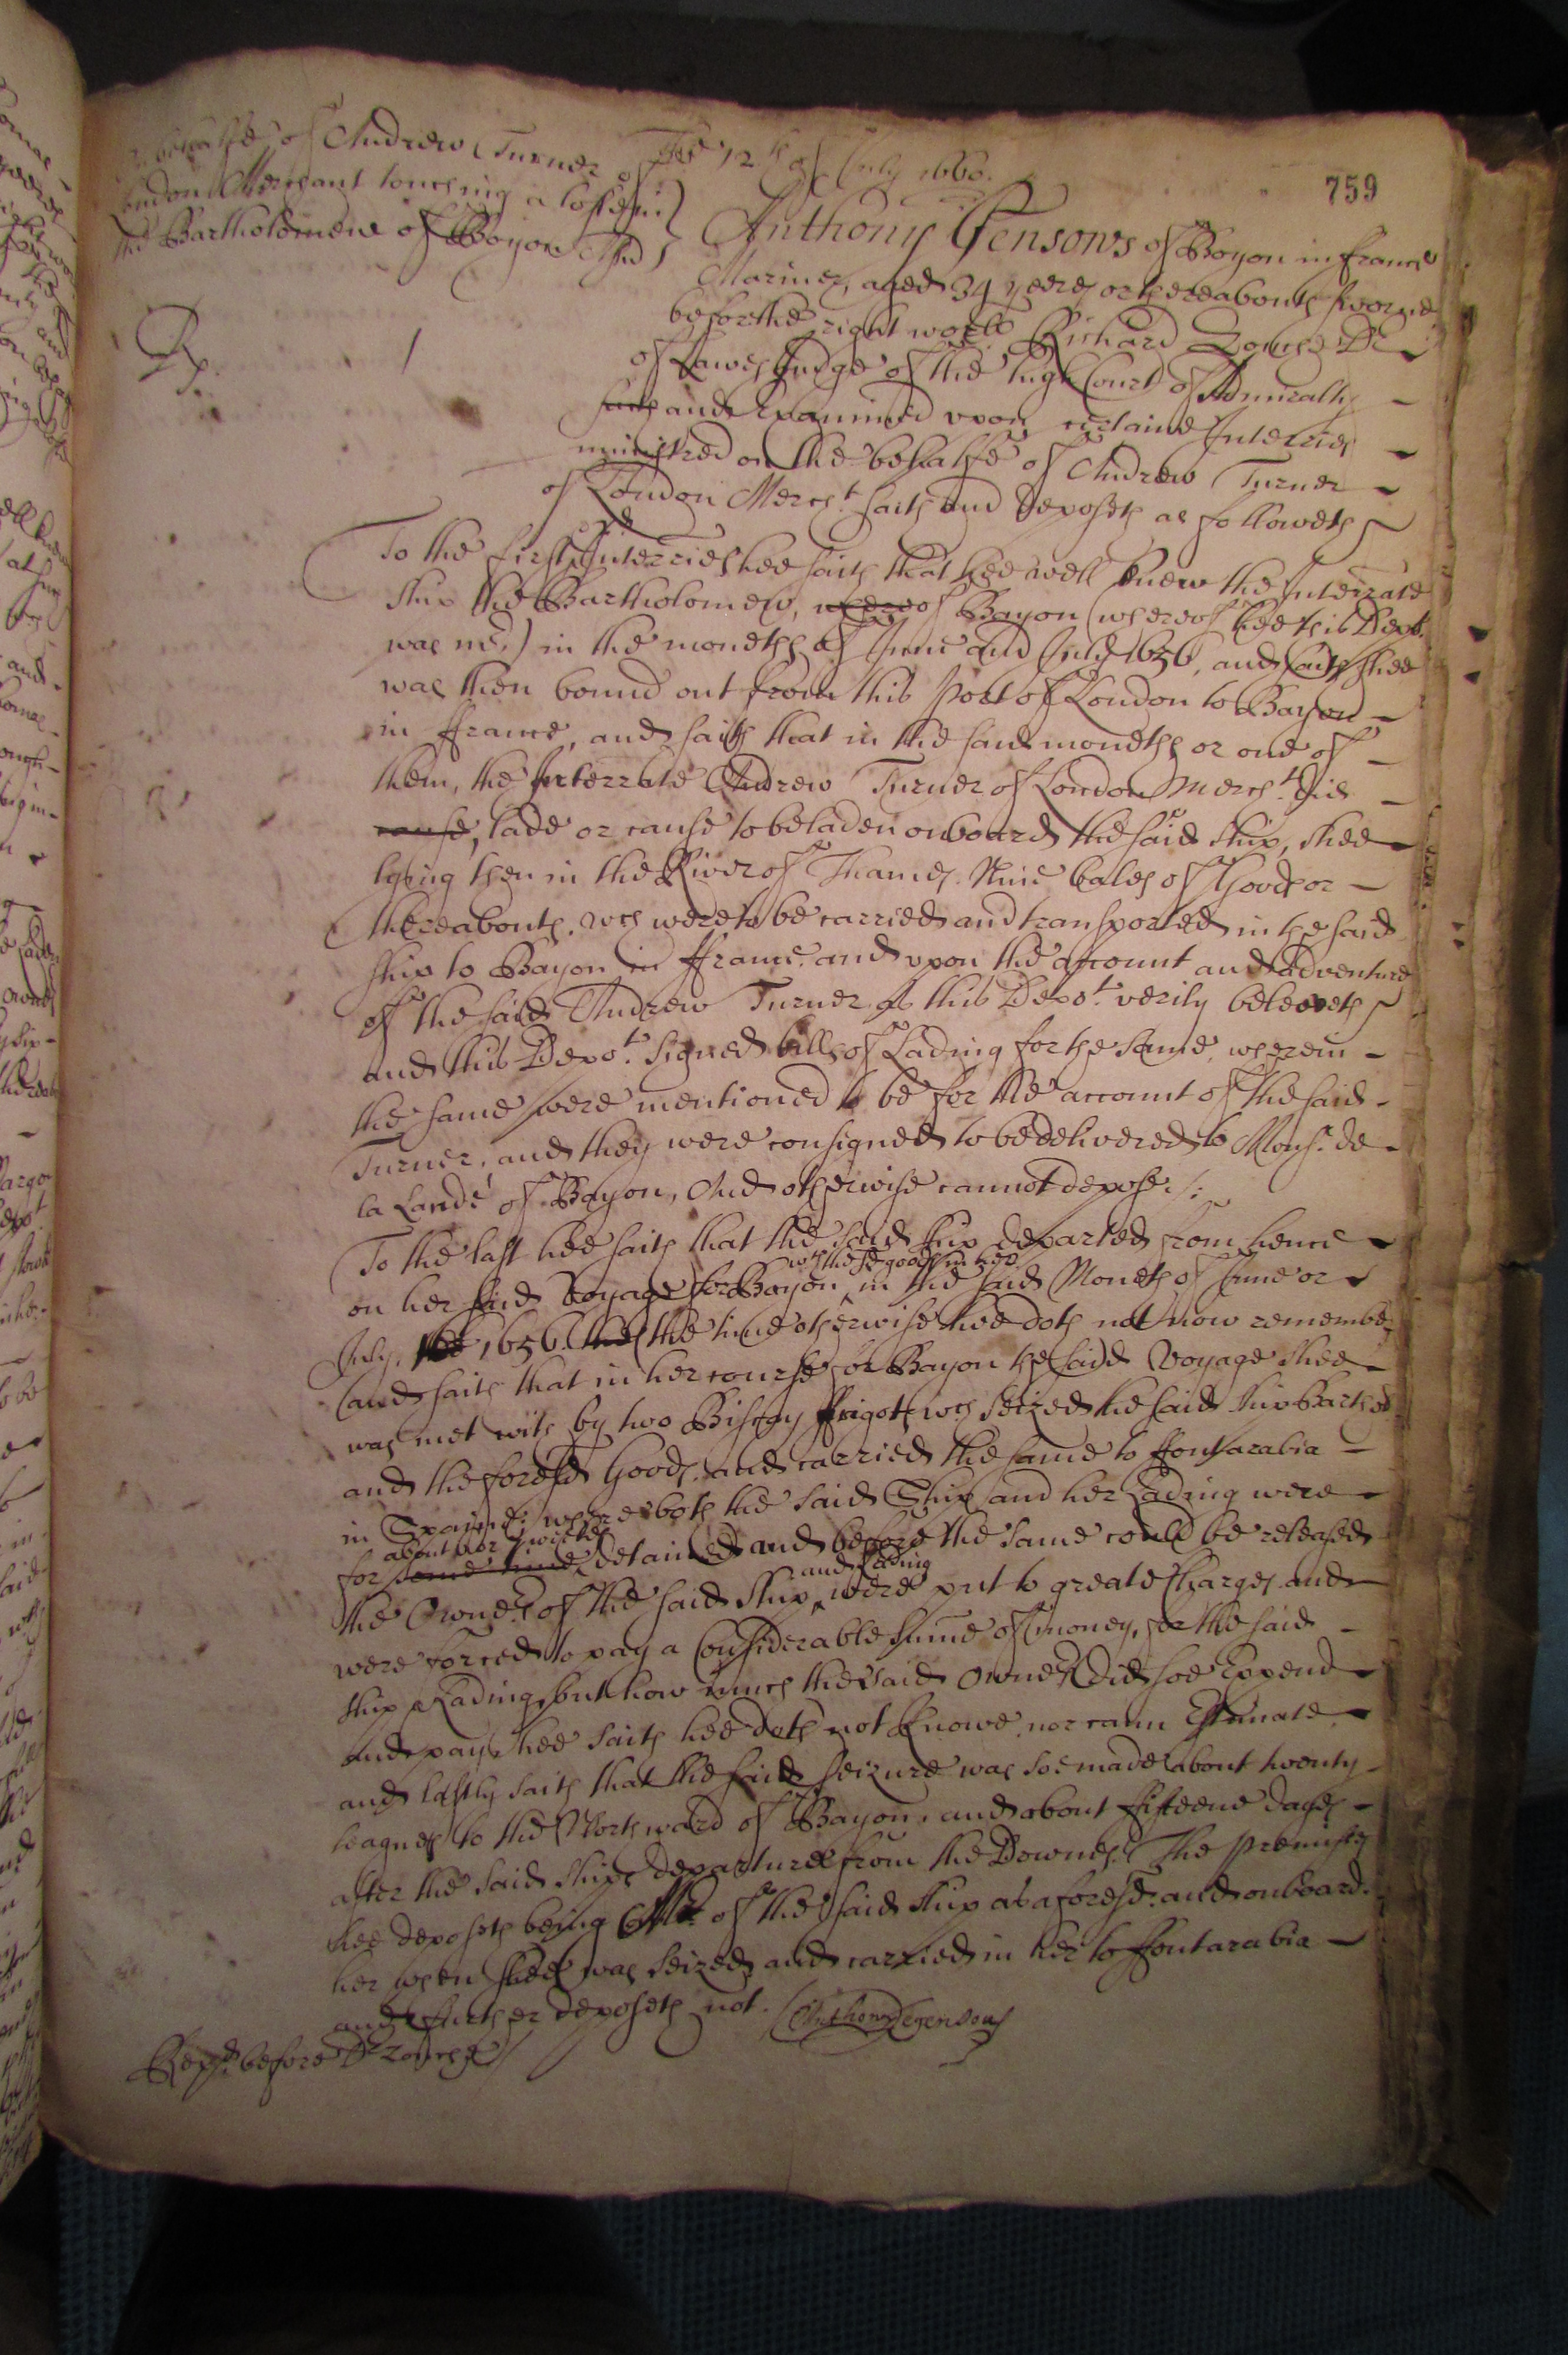 behalfe of Andrew Turner of
London Merchant touching a losse in
the Bartholomew of Boyon
The 12th of July 1660.
759
Rp.
1
Anthony Gensows of Boyon in france
Mariner, aged 34 yeeres or thereabouts sworne
before the right worll Richard Zouch Dr
of Lawes Judge of the high Court of Admiralty
and Examined upon certaine Interries
ministred on the behalfe of Andrew Turner
of London Mercht. saith and deposeth as followeth
To the first Interrie hee saith that hee well knew the Interrate
ship the Bartholomew, were of Bayon (whereof hee this Dept.
was mr.) in the moneths of June and July 1656, and saith shee
was then bound out from this Port of London to Bayon
in ffrance, and saith that in the said moneths or one of
them, the Interrate Andrew Turner of London Mercht. did
cause, lade or cause to be laden onboard the said ship, shee
lyeing then in the River of Thames. Nine bales of Goods or
thereabouts. wch were to be carried and transported in the said
ship to Bayon in ffrance. and upon the account and adventure
of the said Andrew Turner as this Depot. verily beleeveth
and this Depot. signed bills of Lading for the same, wherein
the same were mentioned to be for the account of the said
Turner, and they were consigned to be delivered to Monsr. de
la Lande of Bayon, And otherwise cannot depose /:
To the last hee saith that the said ship departed from hence
with these goods in her
on her said Voyage for Bayon in the said Moneth of June or
July, the 1656. the time otherwise hee doth not now remember
(and saith that in her course for Bayon the said Voyage shee
was met with by two Biscay ffrigots wch seized the said ship
and the foresd Goods. and carried the same to ffontarabia
in Spaine: where both the said Ship and her Lading were
about weekes
for some time detained and before the same could be released
and Lading
the Owners of the said ship were put to greate Charges and
were forced to pay a Considerable summe of money, for the said
ship & Lading, but how much the said Owners did soe Expend
and pay hee saith hee doth not knowe nor cann Estimate,
and lastly saith that the said seizure was soe made about twenty
leagues to the Northward of Bayon, and about fifteene dayes
after the said ships departure from the Downes. The premisses
hee deposeth being Mr. of the said ship as aforesd. and onboard
her when shee was seized and carried in her to ffontarabia
and further deposeth not. Anthony Gensous
Repd. before Dr Zouche